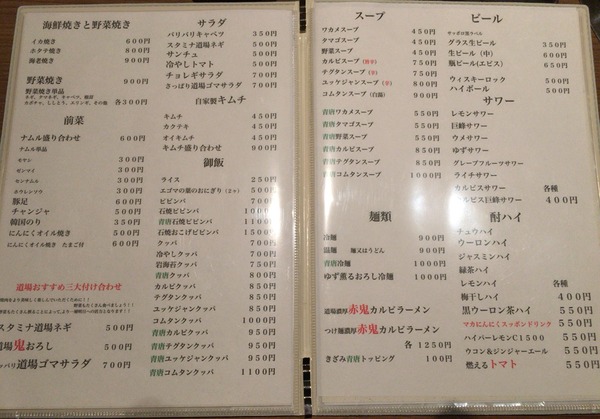 海鮮焼きと野菜焼き
イカ焼き 600円
ホタテ焼き 800円
海老焼き 900円
野菜焼き 900円
野菜焼き単品
各300円
前菜
ナムル盛り合わせ 600円
ナムル単品
モヤシ 300円
ゼンマイ 300円
センナムル 300円
ホウレンソウ 300円
豚足 600円
チャンジャ 500円
韓国のり 350円
にんにくオイル焼き 500円
にんにくオイル焼き たまご付 600円
道場おすすめ三大付け合わせ
スタミナ道場ネギ 500円
道場鬼おろし 500円
道場ゴマサラダ 700円
サラダ
バリバリキャベツ 350円
スタミナ道場ネギ 500円
サンチュ 500円
冷やしトマト 500円
チョレギサラダ 700円
さっぱり道場ゴマサラダ 700円
自家製キムチ
キムチ 450円
カクテキ 450円
オイキムチ 450円
キムチ盛り合わせ 900円
御飯
ライス 250円
エゴマの葉のおにぎり(2ヶ) 500円
ビビンバ 700円
石焼ビビンバ 1100円
青唐石焼ビビンバ 1100円
石焼おこげビビンバ 1100円
クッパ 700円
冷やしクッパ 700円
岩海苔クッパ 750円
青唐クッパ 800円
カルビクッパ 850円
テグタンクッパ 850円
ユッケジャンクッパ 850円
コムタンクッパ 1000円
青唐カルビクッパ 950円
青唐テグタンクッパ 950円
青唐ユッケジャンクッパ 950円
青唐コムタンクッパ 1100円
スープ
ワカメスープ 450円
タマゴスープ 450円
野菜スープ 450円
カルビスープ 750円
テグタンスープ 750円
ユッケスープ 800円
コムタンスープ(白湯) 900円
青唐ワカメスープ 550円
青唐タマゴスープ 550円
青唐野菜スープ 550円
青唐カルビスープ 850円
青唐テグタンスープ 850円
青唐コムタンスープ 1000円
麺類
冷麺 900円
温麺 麺又はうどん 900円
青唐冷麺 1000円
ゆず薫るおろし冷麺 1000円
道場濃厚赤鬼カルビラーメン
つけ麺濃厚赤鬼カルビラーメン
各 1250円
きざみ青唐トッピング 100円
ビール
サッポロ黒ラベル
グラス生ビール 350円
生ビール(中) 600円
瓶ビール(エビス) 650円
ウィスキーロック
ハイボール
サワー
レモンサワー
巨峰サワー
ウメサワー
ゆずサワー
グレープフルーツサワー
ライチサワー
カルピスサワー 各種
カルピス巨峰サワー 400円
酎ハイ
チュウハイ
ウーロンハイ
ジャスミンハイ
緑茶ハイ
レモンハイ 各種
梅干しハイ 400円
黒ウーロン茶ハイ 550円
マカにんにくスッポンドリンク 550円
ハイパーレモンC1500 550円
ウコン&ジンジャーエール 550円
燃えるトマト 550円